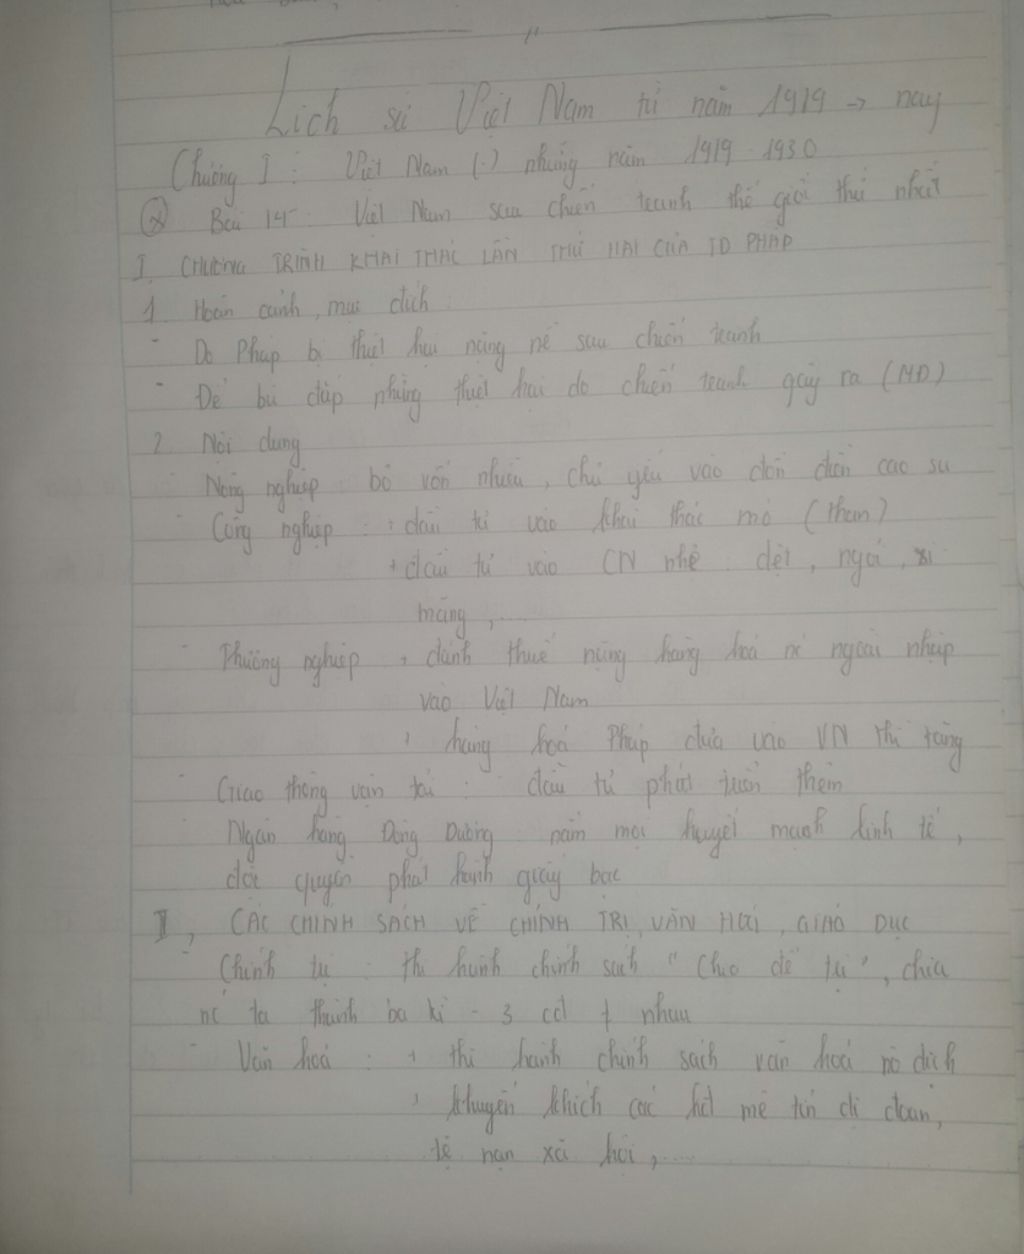 Lịch sử Việt Nam từ năm 1919 → nay
Chương I : Việt Nam (.) những năm 1919 - 1930
Bài 14 : Việt Nam sau chiến tranh thế giới thứ nhất
I CHƯƠNG TRÌNH KHAI THÁC LẦN THỨ HAI CỦA TD PHÁP
1. Hoàn cảnh, mục đích :
- Do Pháp bị thiệt hại nặng nề sau chiến tranh
- Để bù đắp những thiệt hại do chiến tranh gây ra (MĐ)
2. Nội dung
- Nông nghiệp : bỏ vốn nhiều, chủ yếu vào đồn điền cao su
- Công nghiệp : + đầu tư vào khai thác mỏ (than)
+ đầu tư vào CN nhẹ : dệt, ngói, xi
măng, ...
- Thương nghiệp : + đánh thuế nặng hàng hoá nc ngoài nhập
vào Việt Nam
+ hàng hoá Pháp đưa vào VN thì tăng
- Giao thông vận tải : đầu tư phát triển thêm
- Ngân hàng Đông Dương : nắm mọi huyết mạch kinh tế,
độc quyền phát hành giấy bạc
II, CÁC CHÍNH SÁCH VỀ CHÍNH TRỊ, VĂN HOÁ, GIÁO DỤC
- Chính trị : thi hành chính sách " Chia để trị ", chia
nc ta thành ba kì - 3 cđ ≠ nhau
- Văn hoá : + thi hành chính sách văn hoá nô dịch
+ khuyến khích các hđ mê tín dị đoan,
tệ nạn xã hội, ...